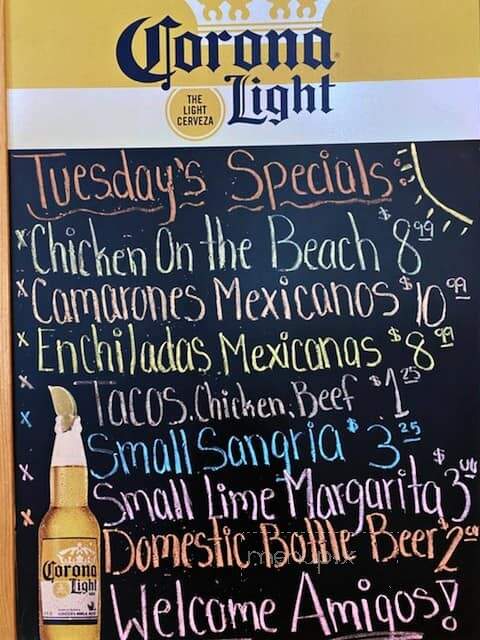 Corona
Light
THE
LIGHT
CERVEZA
Tuesday's Specials
x Chicken On the Beach $8.99
x Camarones Mexicanos $10.99
x Enchiladas Mexicanas $8.99
x Tacos, Chicken, Beef $1.25
x Small Sangria $3.25
x Small Lime Margarita $3.00
x Domestic Bottle Beer $2.00
Welcome Amigos!
Corona
Light
menupix